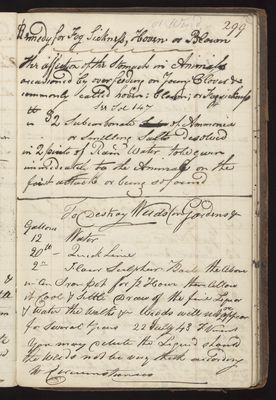 299
Remedy for Fog Sickness, Hoven or Blown
The affection of the Stomach in Animals
occasioned by over feeding on Young Clover &c
commonly called hoven: blown; or Fog sickness
See Fol 147
2 Subcarbonate of Ammonia
or Smelling Salts Desolved
in 2 pints of Rain Water to be given
immediately to the Animals on the
first attack or being so found
To Destroy Weeds in Gardens &c
Gallons
12 Water
20 lb Quick Lime
2 Flour Sulphur Boil the above
in an Iron pot for 1 Hour then Allow
it Cool & Settle Draw of the fine Liquor
& Water the walks &c Weeds will not appear
for Several Years 22 July 43
You may Dilute the Liquid should
the Weeds not be very thick according
to Circumstances